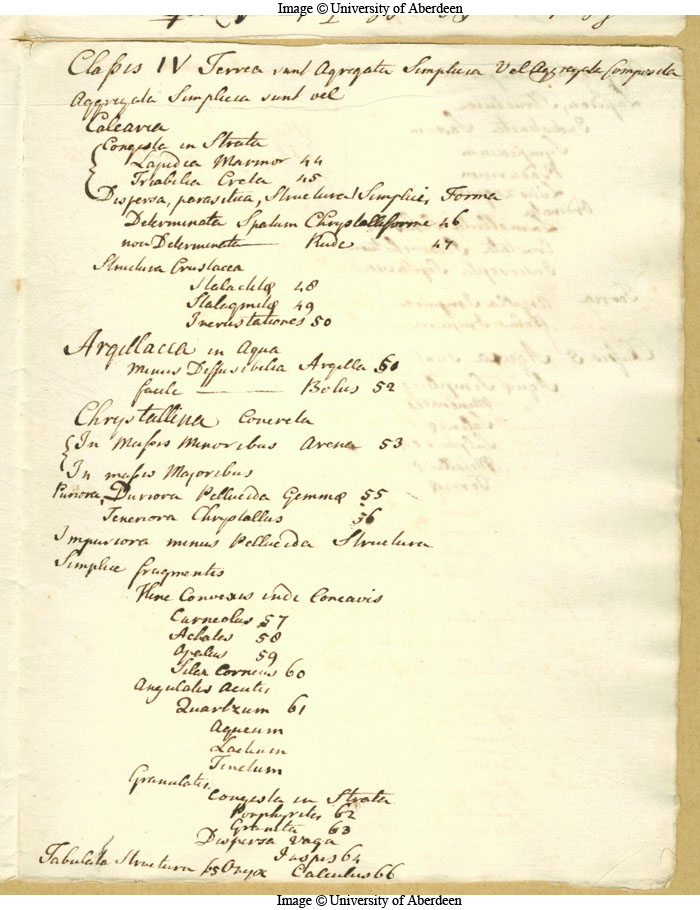 Image © University of Aberdeen
Classis IV Terrea sunt Agregata Simplicia Vel Aggregata Composita
Aggregata Simplicia sunt vel
Calcaria
Congesta in Strata
Lapidea Marmor 44
Friabilia Creta 45
Dispersa, parasitica, Structura Simplici, Forma
Determinata Spatum Chrystalliforme 46
non Determinata — Rude 47
Structura Crustacea
Stalactitæ 48
Stalagmitæ 49
Incrustationes 50
Argillacea in Aqua
minus Diffusibilia Argilla 50
facile — Bolus 52
Chrystallina Concreta
In Massis Minoribus Arena 53
In massis Majoribus
Puriora, Duriora Pellucida Gemmæ 55
Teneriora Chrystallus 56
Impuriora minus Pellucida Structura
Simplice fragmentis
Hinc Convexis inde Concavis
Carneolus 57
Achates 58
Opalus 59
Silex Corneus 60
Angulatis Acutis
Quartzum 61
Aqueum
Lacteum
Tinctum
Granulatis
Congesta in Strata
Porphyrites 62
Granita 63
Dispersa Vaga
Jaspis 64
Tabulata Structura 65 Onyx Calculus 66
Image © University of Aberdeen